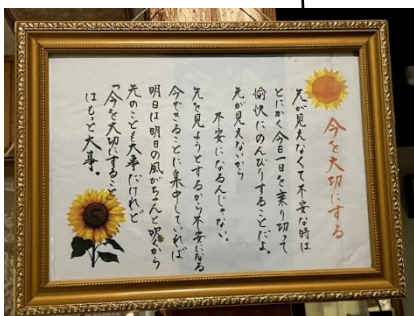 今を大切にする
先が見えなくて不安な時は
とにかく今日一日を乗り切って
愉快にのんびりすることだよ。
先が見えないから
不安になるんじゃない、
先を見ようとするから不安になる
今できることに集中していれば
明日は明日の風がちゃんと吹くから
先のことも大事だけれど
「今を大切にすること」
はもっと大事。